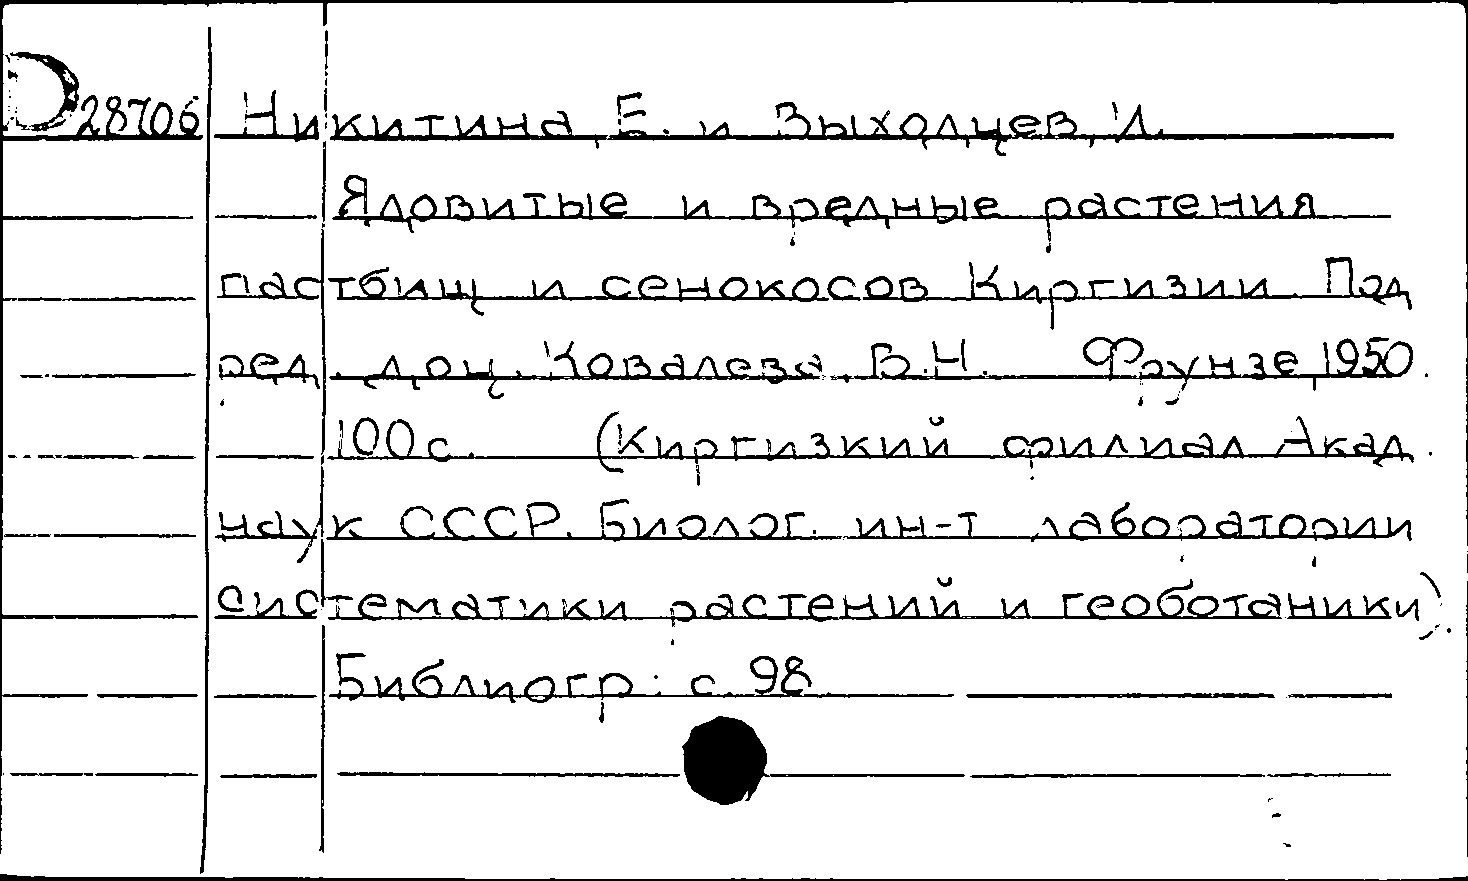 D 28706 Никитина, Е. и Выходцев, И.
Ядовитые и вредные растения
пастбищ и сенокосов Киргизии. Под
ред. доц. Ковалева, В.Н. Фрунзе, 1950.
100 с. (Киргизкий филиал Акад.
наук СССР. Биолог. ин-т лаборатории
систематики растений и геоботаники).
Библиогр: с. 98